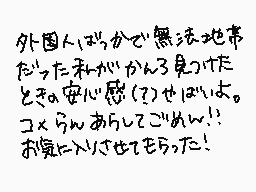 外国人ばっかで無法地帯
だった私がかんろ見つけた
ときの安心感(?)やばいよ。
コメらんあらしてごめん!!
お気に入りさせてもらった!